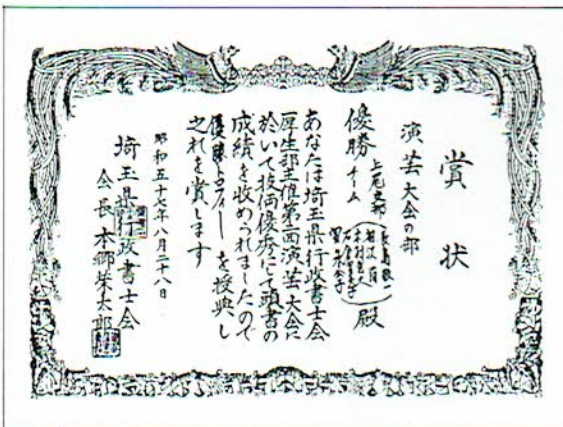 賞状
演芸大会の部
優勝チーム 上尾支部 殿
あなたは埼玉県行政書士会
厚生部主催第一回演芸大会に
於いて技倆優秀にて頭書の
成績を収められましたので
優勝トロフィーを授与し
之れを賞します
昭和五十七年八月二十八日
埼玉県行政書士会
会長 本郷栄太郎